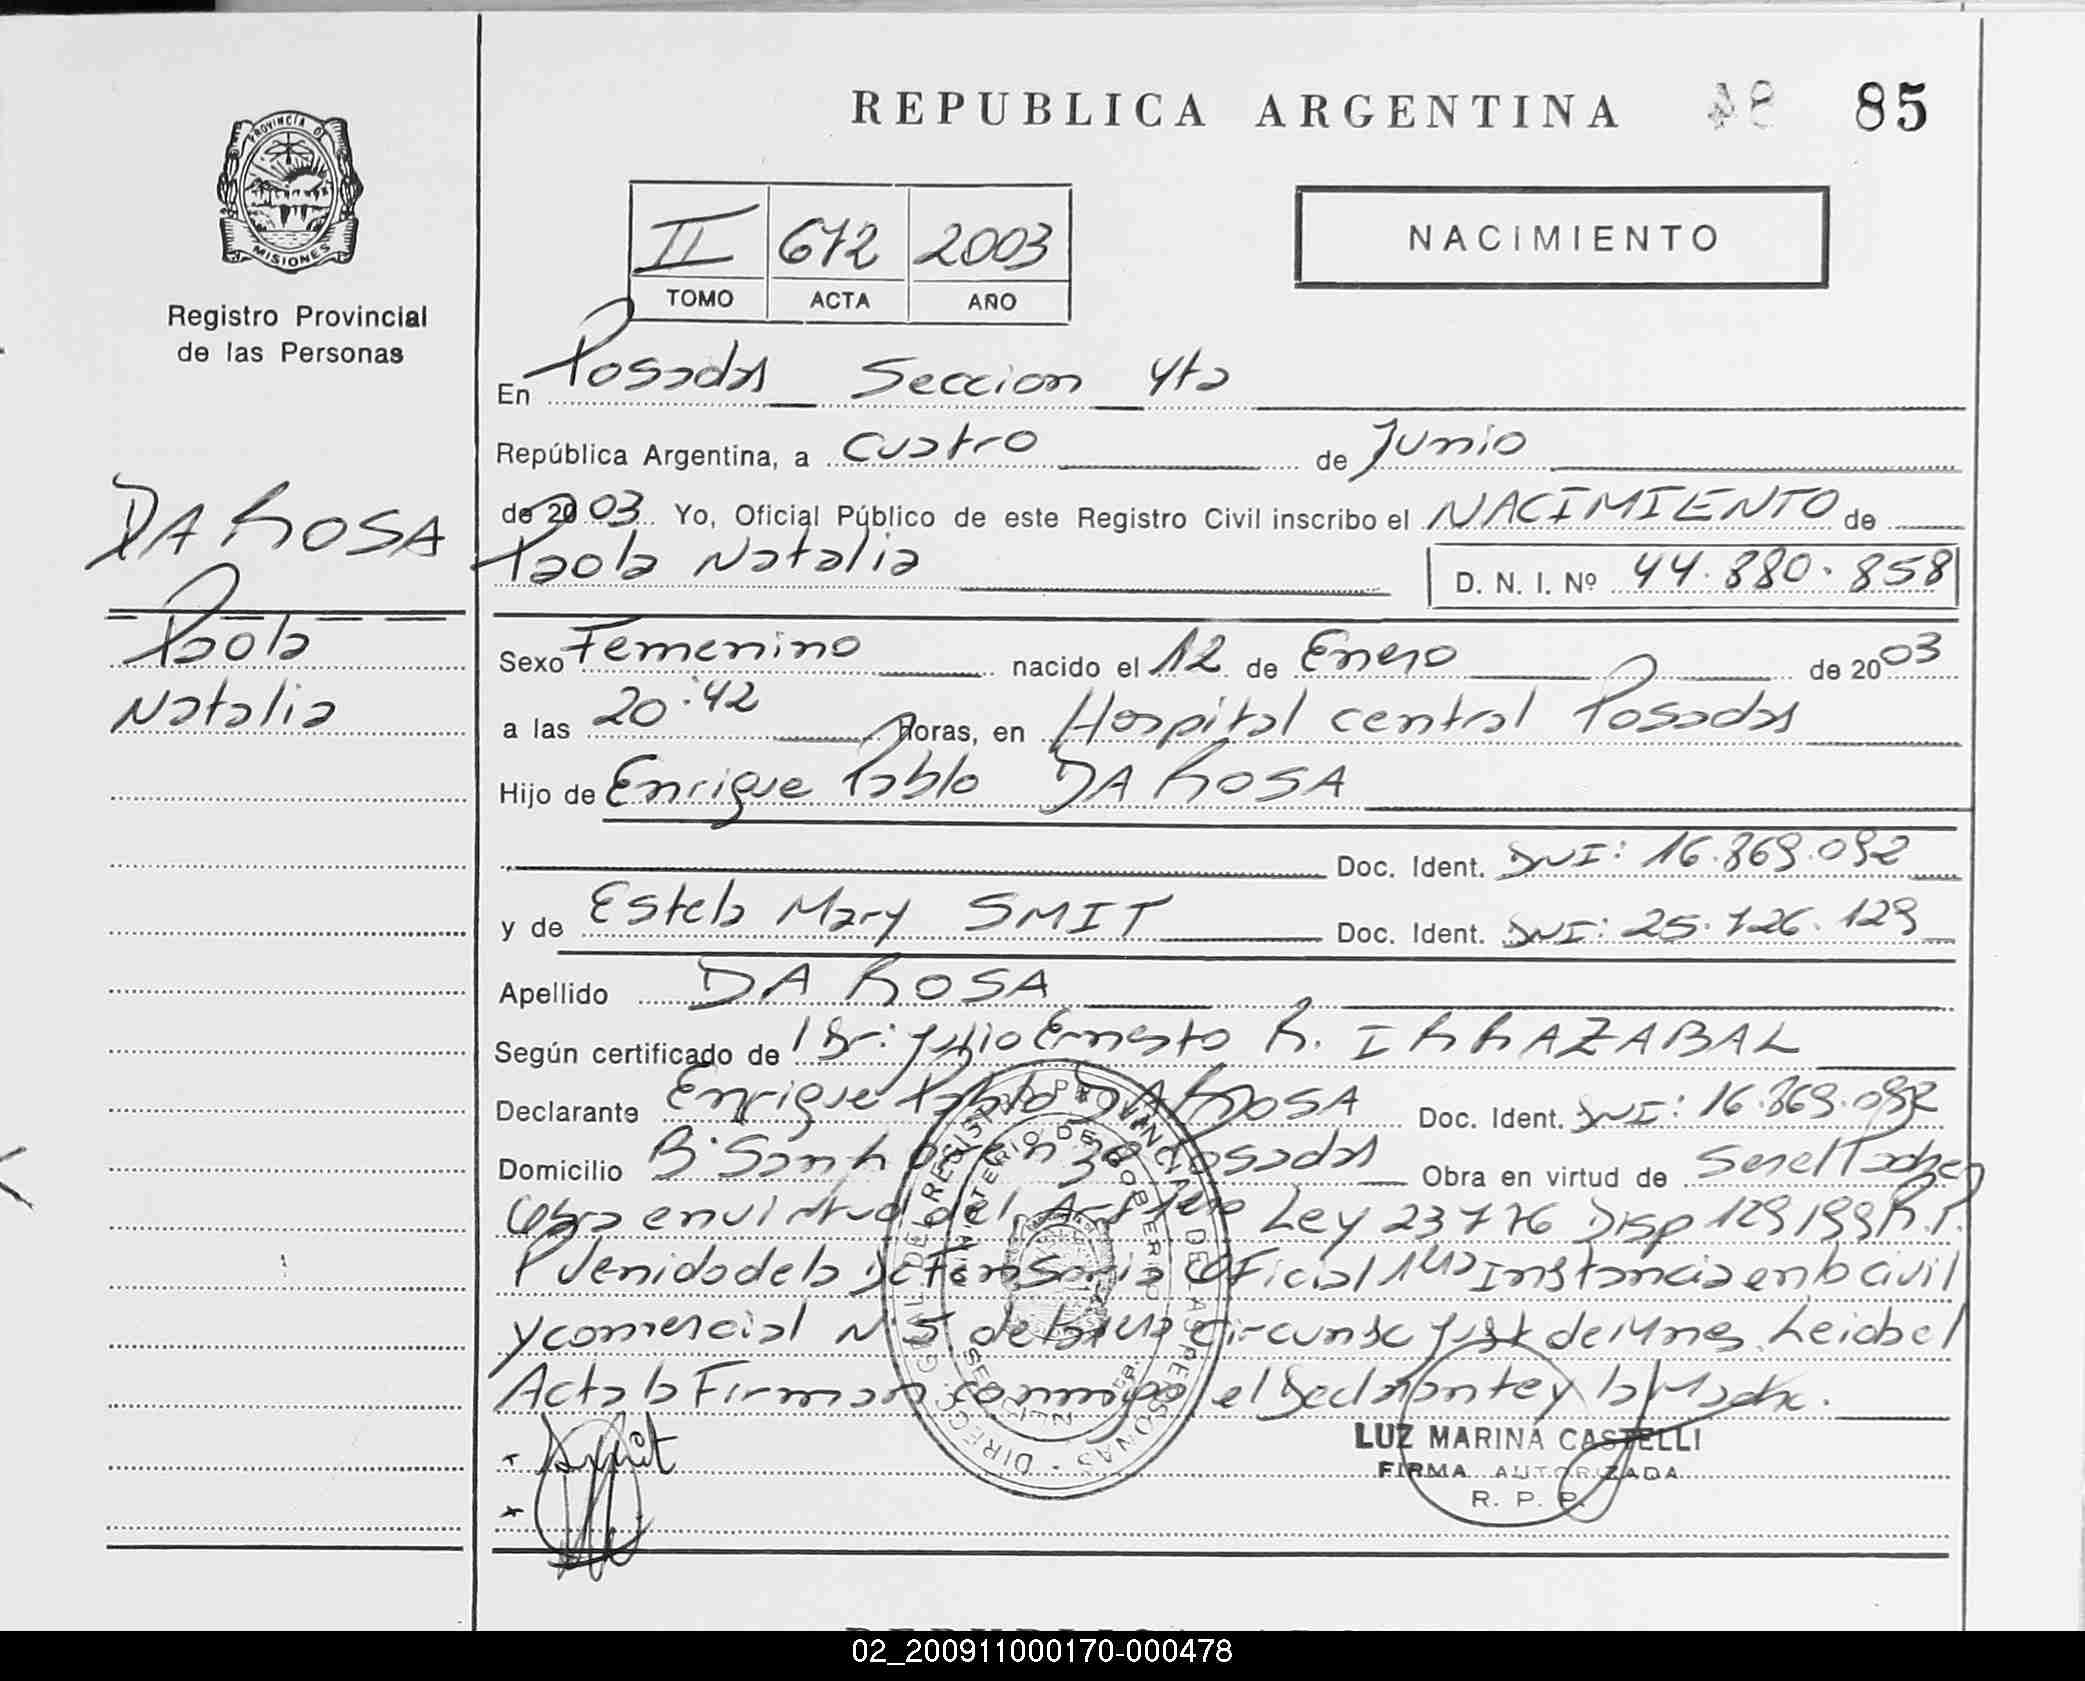 REPUBLICA ARGENTINA 48 85
PROVINCIA D MISIONES
Registro Provincial
de las Personas
NACIMIENTO
II 672 2003
TOMO ACTA AÑO
DA ROSA
Paola
Natalia
En Posadas Seccion 4ta
República Argentina, a Cuatro de Junio
de 2003 Yo, Oficial Público de este Registro Civil inscribo el NACIMIENTO de
Paola Natalia D. N. I. Nº 44.880.858
Sexo Femenino nacido el 12 de Enero de 2003
a las 20:42 horas, en Hospital central Posadas
Hijo de Enrique Pablo DA ROSA
Doc. Ident. DNI: 16.869.092
y de Estela Mary SMIT Doc. Ident. DNI: 25.726.129
Apellido DA ROSA
Según certificado de Dr: Julio Ernesto R. IRRAZABAL
Declarante Enrique Pablo DA ROSA Doc. Ident. DNI: 16.869.092
Domicilio B: San Posadas Obra en virtud de Ser el Padre
Obra en virtud del Art Ley 23776 Disp 129/99 R.P.
P venido de la Defensoria Oficial 1era Instancia en lo civil
y comercial Nº 5 de la 1era circunsc Jud de Mnes. Leida el
Acta la Firman conmigo el Declarante y la Madre.
Smit
DIRECC. GRAL DEL REGISTRO PROVINCIAL DE LAS PERSONAS
MINISTERIO DE GOBIERNO
LUZ MARINA CASTELLI
FIRMA AUTORIZADA
R. P. P.
02_200911000170-000478